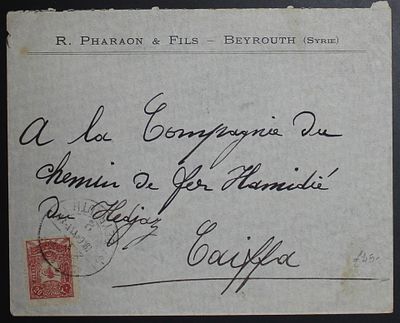 R. PHARAON & FILS – BEYROUTH (SYRIE)
A la Compagnie du
chemin de fer Hamidié
du Hedjaz
Caiffa